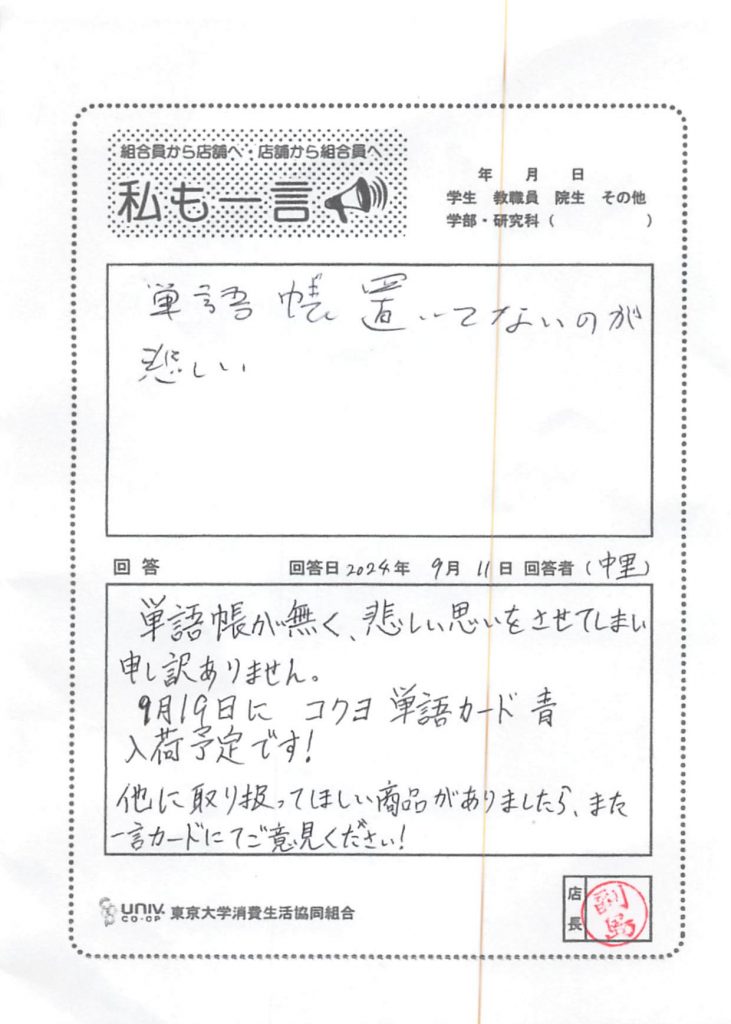 組合員から店舗へ・店舗から組合員へ
私も一言
年 月 日
学生 教職員 院生 その他
学部・研究科（ ）
単語帳置いてないのが
悲しい
回答 回答日2024年 9月 11日 回答者（中里）
単語帳が無く、悲しい思いをさせてしまい
申し訳ありません。
9月19日に コクヨ 単語カード 青
入荷予定です!
他に取り扱ってほしい商品がありましたら、また
一言カードにてご意見ください!
UNIV.
CO-OP
東京大学消費生活協同組合
店長
副島